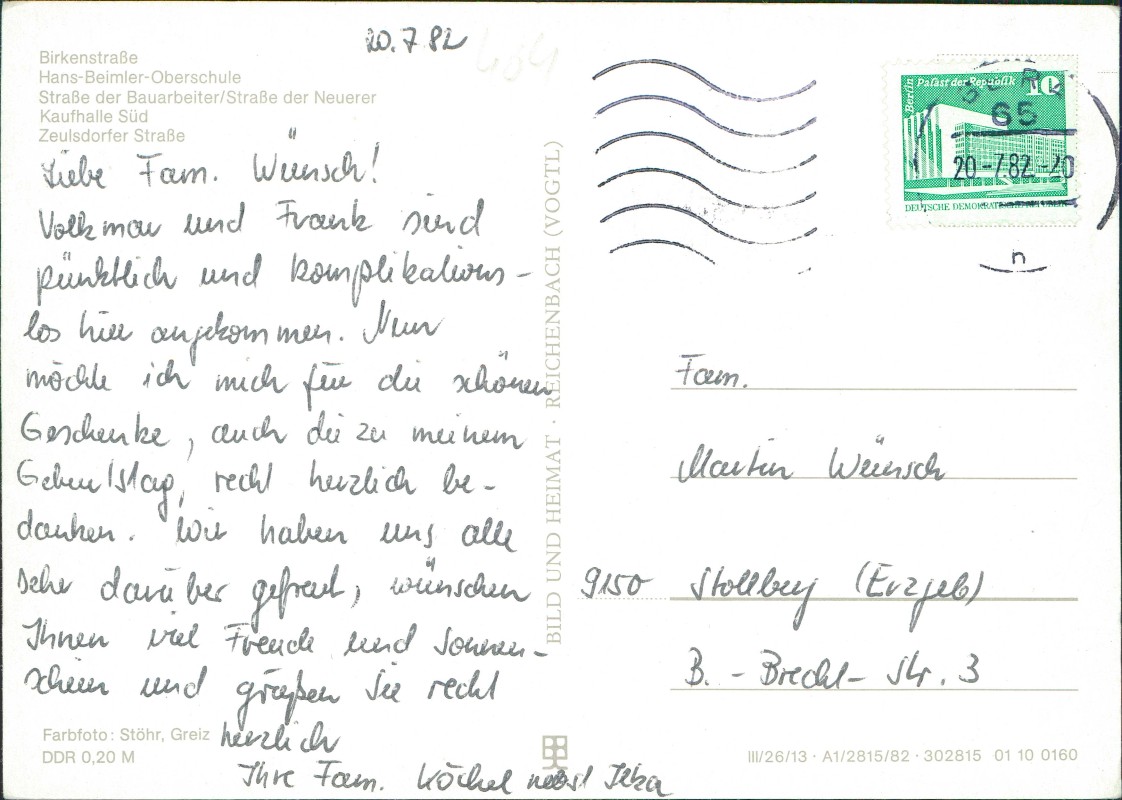 20.7.82
464
Birkenstraße
Hans-Beimler-Oberschule
Straße der Bauarbeiter/Straße der Neuerer
Kaufhalle Süd
Zeulsdorfer Straße
Liebe Fam. Wünsch!
Volkmar und Frank sind
pünktlich und komplikations-
los hier angekommen. Nun
möchte ich mich für die schönen
Geschenke, auch die zu meinem
Geburtstag, recht herzlich be-
danken. Wir haben uns alle
sehr darüber gefreut, wünschen
Ihnen viel Freude und Sonnen-
schein und grüßen Sie recht
herzlich
Ihre Fam. Köchel nebst Ilka
Farbfoto: Stöhr, Greiz
DDR 0,20 M
BILD UND HEIMAT · REICHENBACH (VOGTL)
Berlin Palast der Republik 10
DEUTSCHE DEMOKRATISCHE REPUBLIK
65
20.-7.82.-20
n
Fam.
Martin Wünsch
9150 Stollberg (Erzgeb)
B.-Brecht-Str. 3
III/26/13 · A1/2815/82 · 302815 01 10 0160